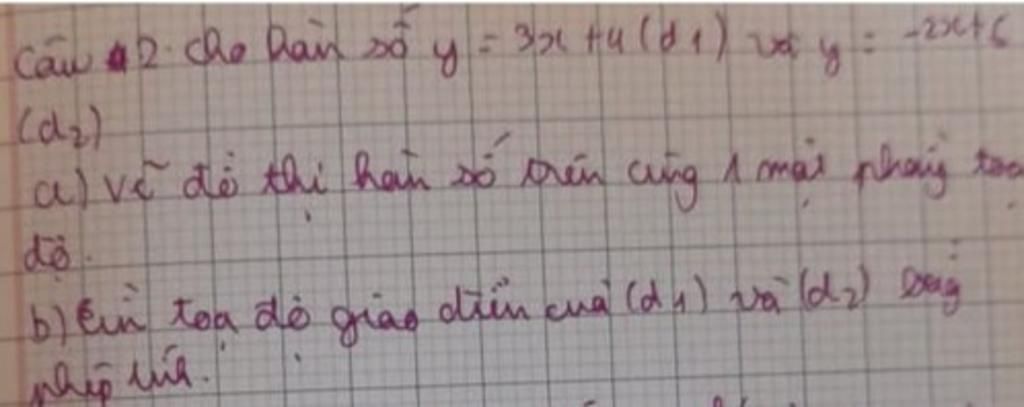 Câu 2. Cho hàn số y = 3x + 4 (d1) và y = -2x+6
(d2)
a) Vẽ đồ thị hàn số trên cùng 1 mặt phẳng toạ
độ.
b) tìn toạ độ giao điển của (d1) và (d2) bằng
phép tính.